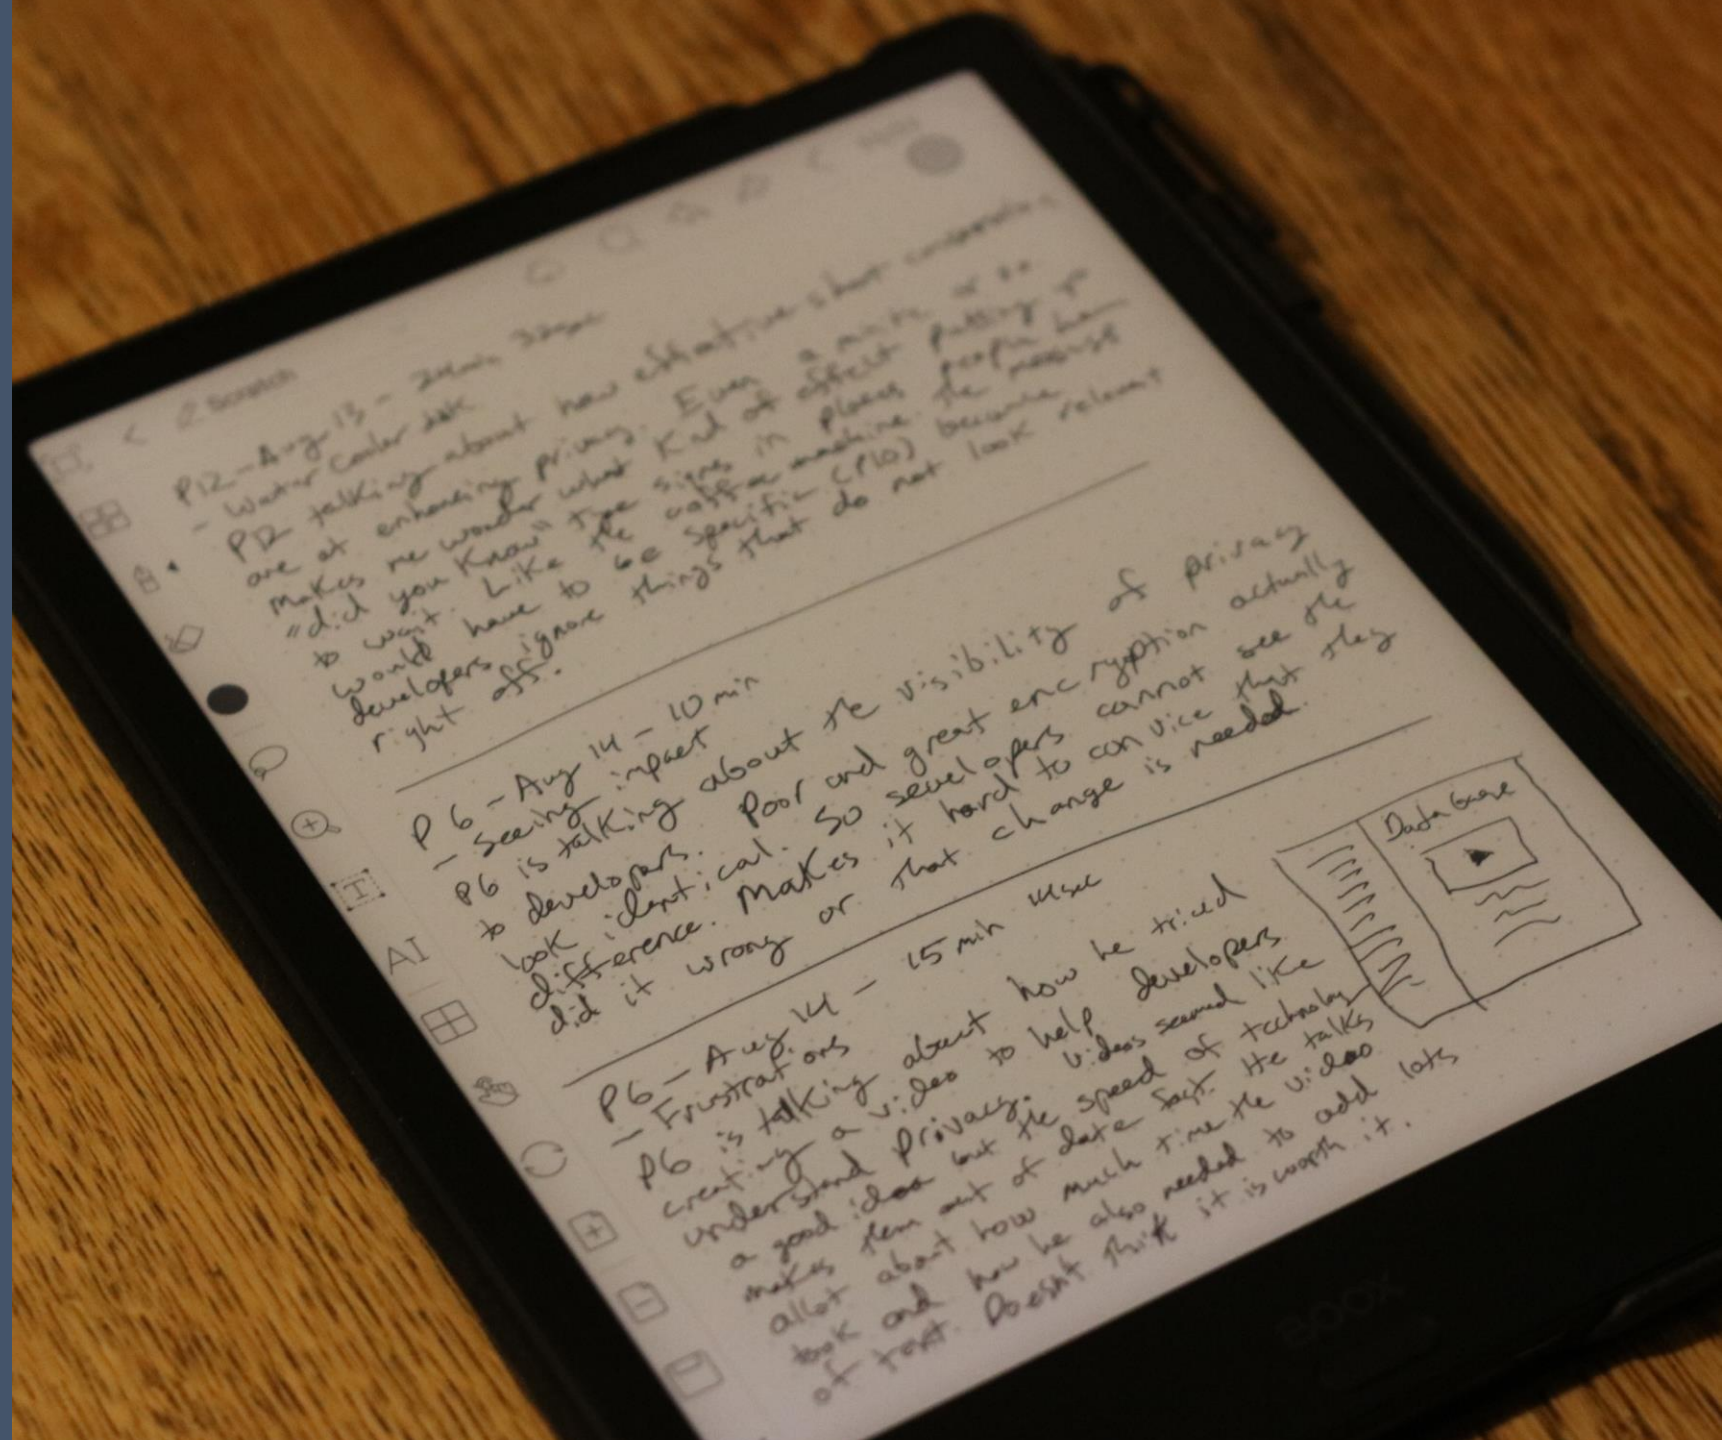 Scratch
P12 - Aug 13 - 24min 32sec
- Water Cooler talk
P12 talking about how effective short conversations
are at enhancing privacy. Even a minute or so
makes me wonder what kind of effect putting up
"did you know" type signs in places people have
to wait. Like the coffee machine. The message
would have to be specific (P10) because
developers ignore things that do not look relevant
right off.
P6 - Aug 14 - 10 min
- Seeing impact
P6 is talking about the visibility of privacy
to developers. Poor and great encryption actually
look identical. So sevelopers cannot see the
difference. Makes it hard to convice that they
did it wrong or that change is needed.
P6 - Aug 14 - 15 min 14sec
- Frustrations
P6 is talking about how he tried
creating a video to help developers
understand privacy. Videos seemed like
a good idea but the speed of technology
makes them out of date fast. He talks
allot about how much time the video
took and how he also needed to add lots
of text. Doesnt think it is worth it.
Data Gurge
AI
BOOX